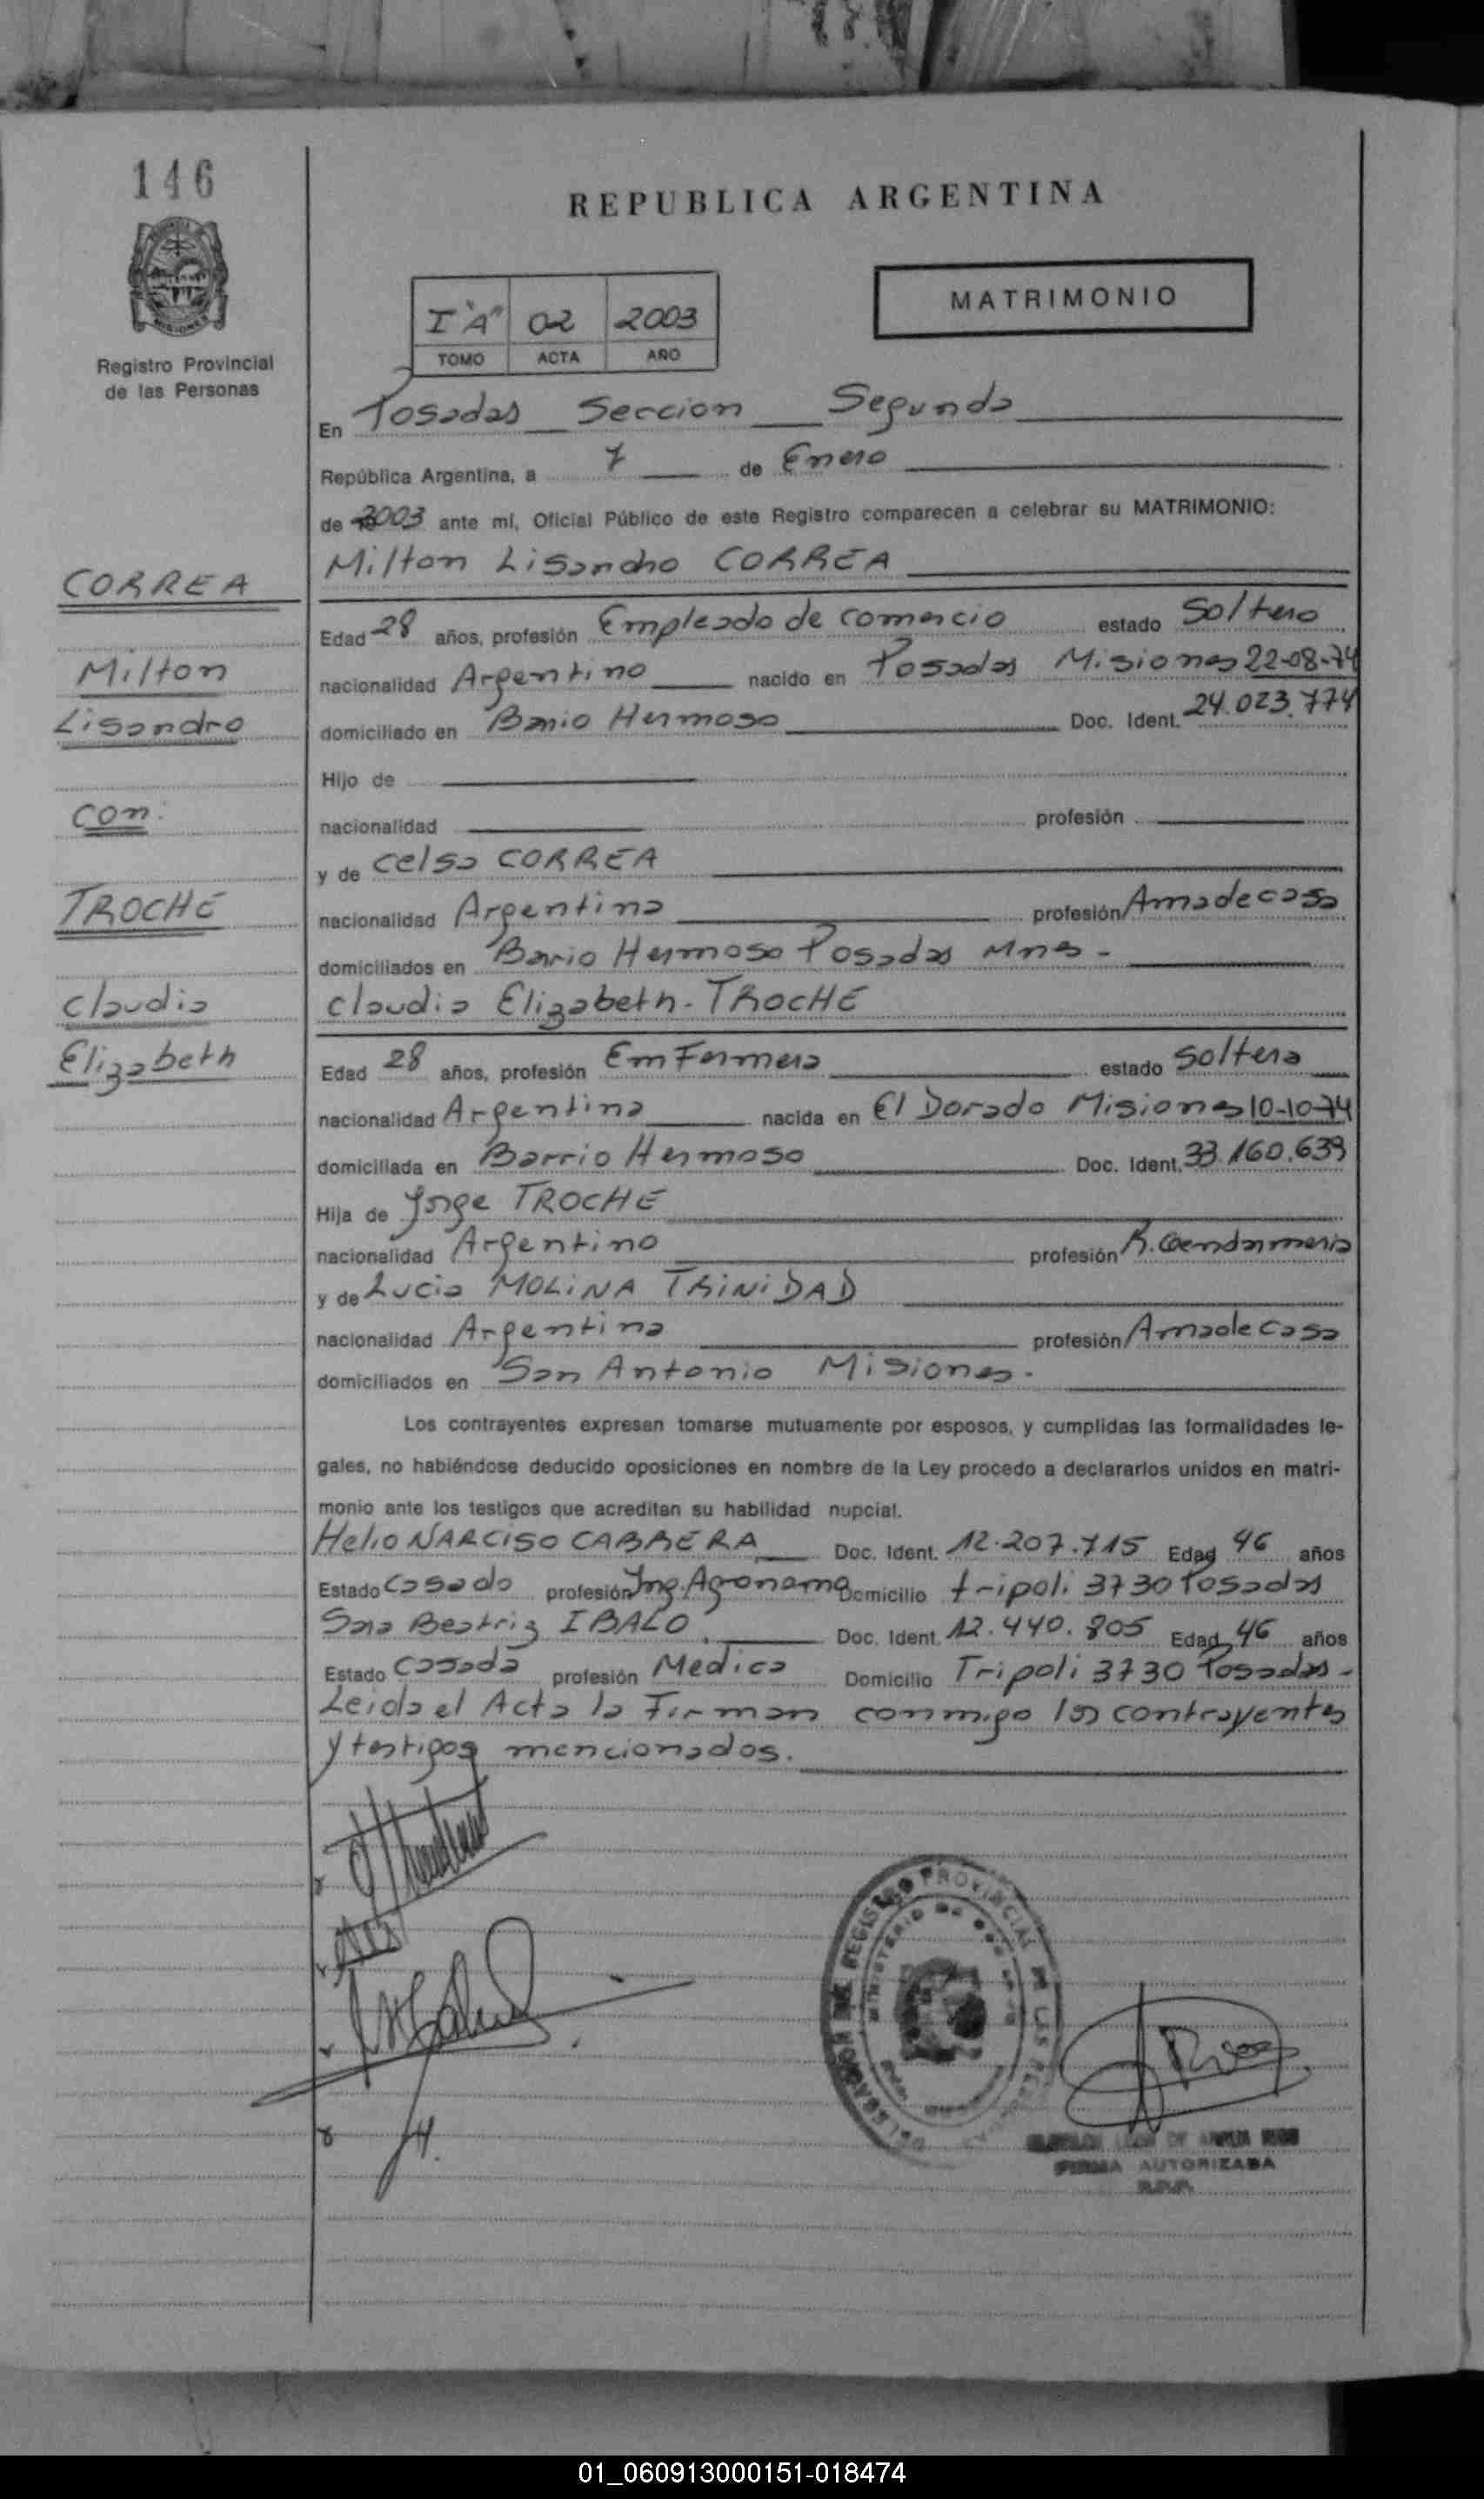 146
REPUBLICA ARGENTINA
MISIONES
Registro Provincial
de las Personas
I "A" 02 2003
TOMO ACTA AÑO
MATRIMONIO
En Posadas Seccion Segunda
República Argentina, a 7 de Enero
de 2003 ante mí, Oficial Público de este Registro comparecen a celebrar su MATRIMONIO:
Milton Lisandro CORREA
CORREA
Milton
Lisandro
con:
TROCHE
Claudia
Elizabeth
Edad 28 años, profesión Empleado de comercio estado Soltero
nacionalidad Argentino nacido en Posadas Misiones 22-08-74
domiciliado en Barrio Hermoso Doc. Ident. 24.023.774
Hijo de
nacionalidad profesión
y de Celsa CORREA
nacionalidad Argentina profesión Ama de casa
domiciliados en Barrio Hermoso Posadas Mnes -
Claudia Elizabeth - TROCHE
Edad 28 años, profesión Emfermera estado Soltera
nacionalidad Argentina nacida en El Dorado Misiones 10-10-74
domiciliada en Barrio Hermoso Doc. Ident. 33.160.639
Hija de Jorge TROCHE
nacionalidad Argentino profesión R. Gendarmeria
y de Lucia MOLiNA TRiNiDAD
nacionalidad Argentina profesión Ama de Casa
domiciliados en San Antonio Misiones -
Los contrayentes expresan tomarse mutuamente por esposos, y cumplidas las formalidades le-
gales, no habiéndose deducido oposiciones en nombre de la Ley procedo a declararlos unidos en matri-
monio ante los testigos que acreditan su habilidad nupcial.
Helio NARCISO CABRERA Doc. Ident. 12.207.715 Edad 46 años
Estado Casado profesión Ing. Agronomo Domicilio tripoli 3730 Posadas
Sara Beatriz IBALO Doc. Ident. 12.440.805 Edad 46 años
Estado Casada profesión Medica Domicilio Tripoli 3730 Posadas -
Leida el Acta la Firman conmigo los contrayentes
y testigos mencionados.
DELEGACION DE REGISTRO PROVINCIAL DE LAS PERSONAS
MINISTERIO DE GOBIERNO
FIRMA AUTORIZADA
R.P.P.
01_060913000151-018474